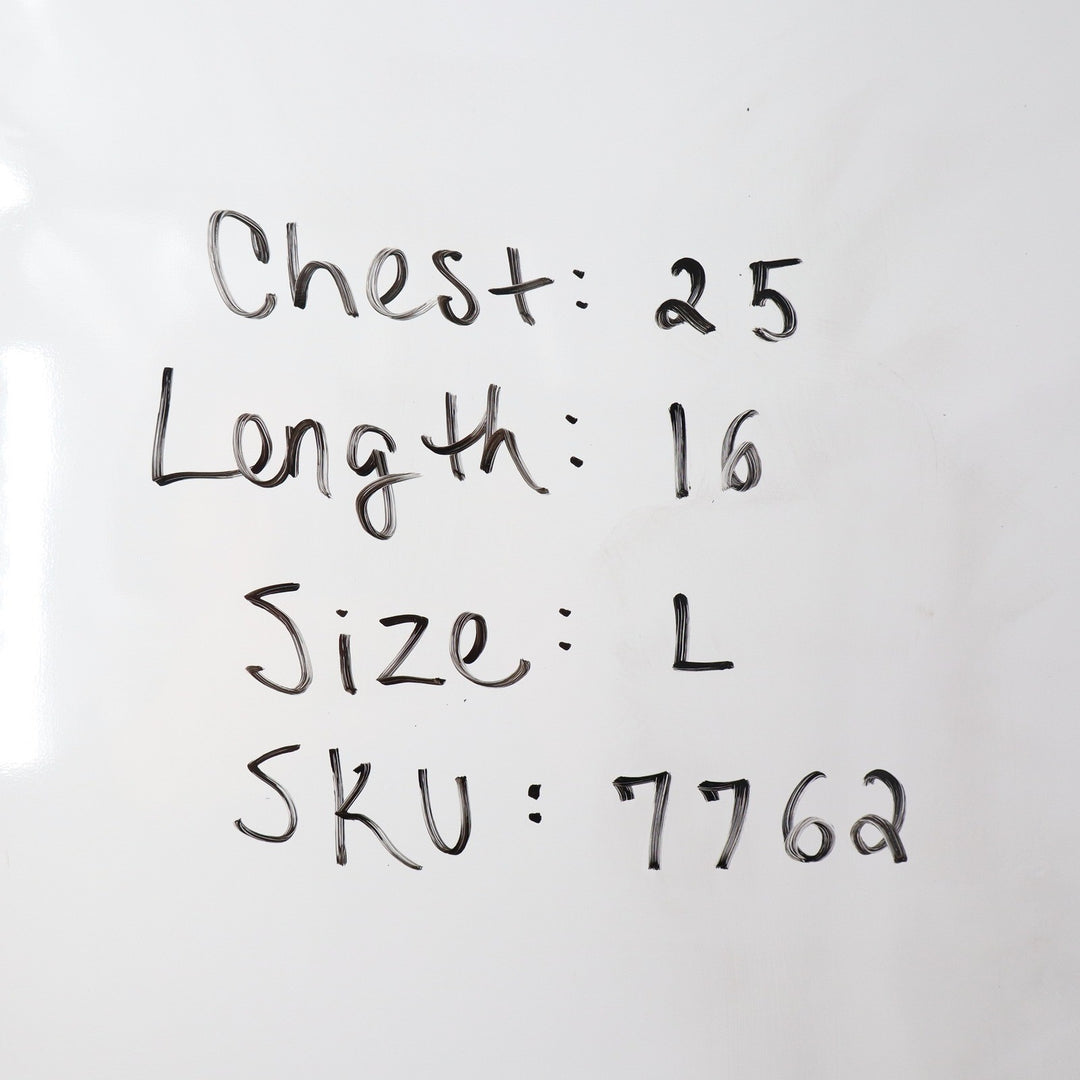 Chest: 25
Length: 16
Size: L
SKU: 7762